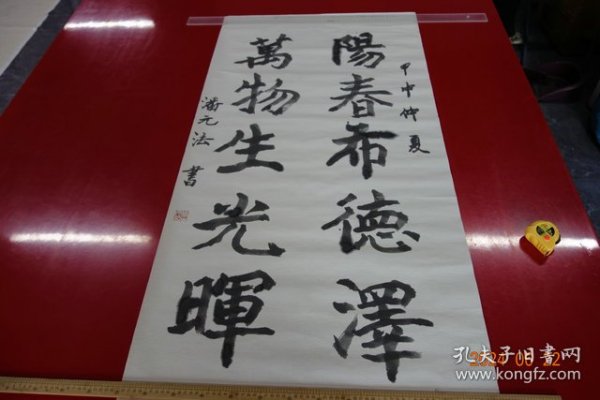 甲申仲夏
陽春布德澤
萬物生光暉
潘元法 書
2024 06 22
孔夫子旧書网
www.kongfz.com